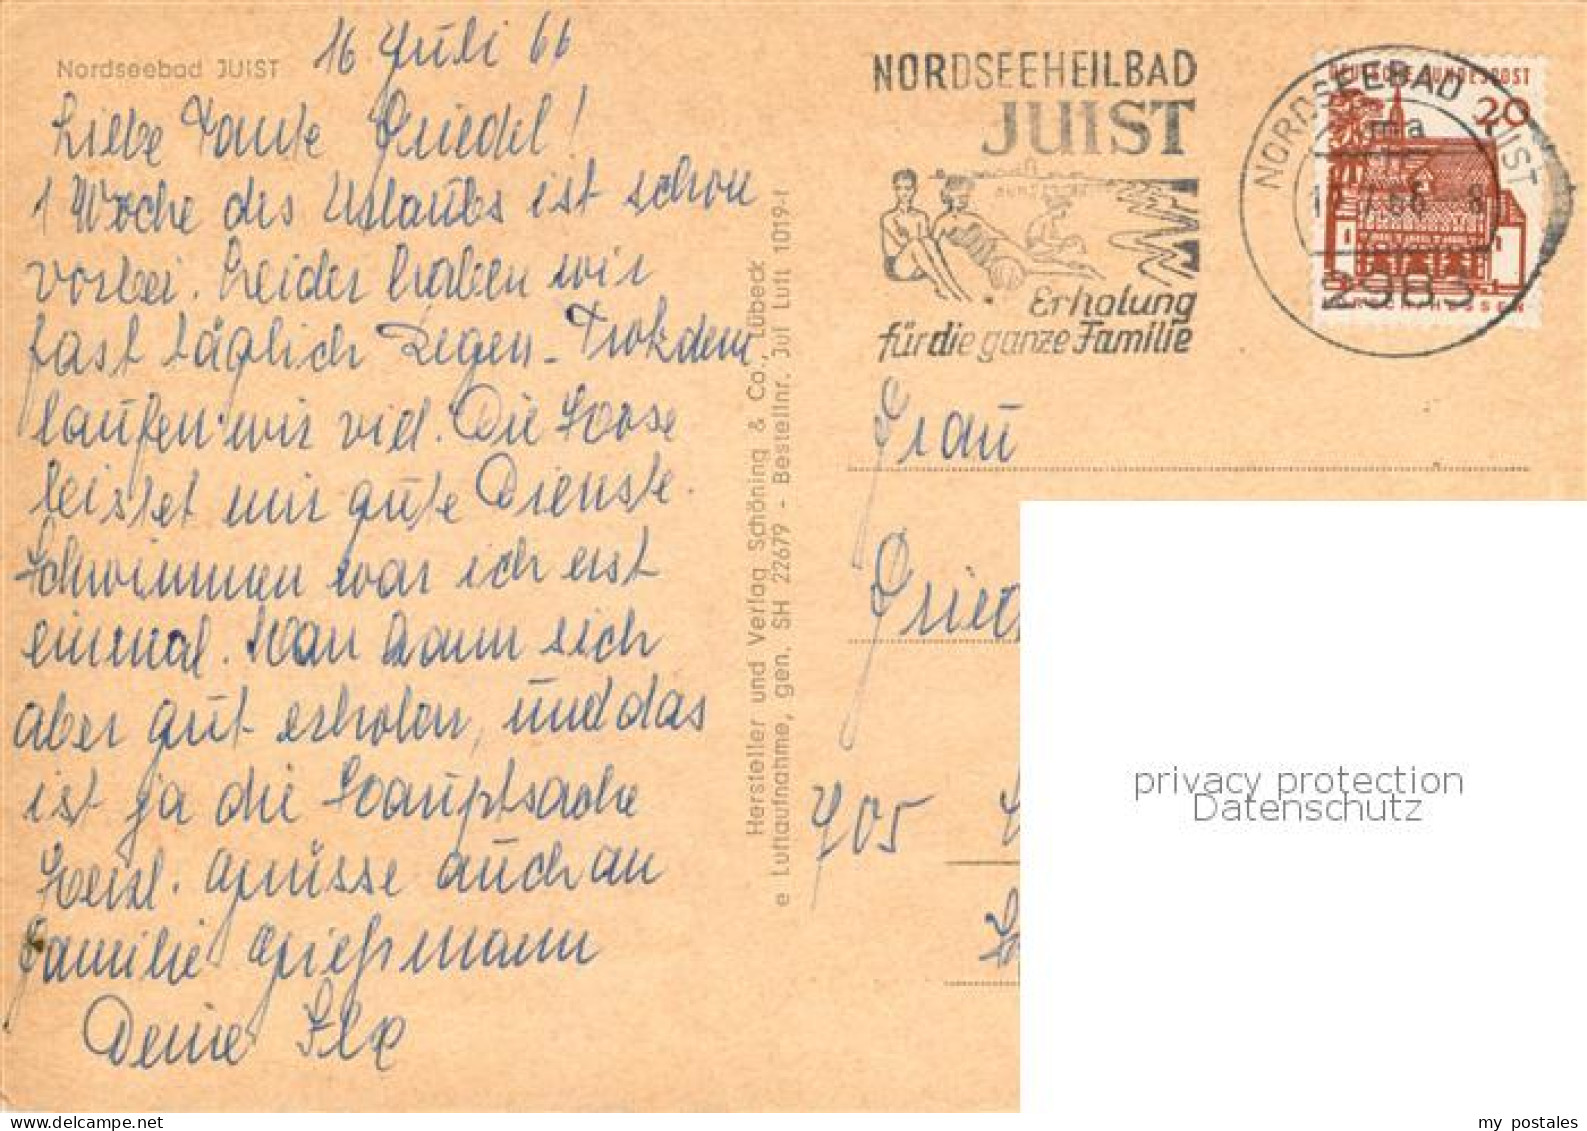 Nordseebad JUIST
16 Juli 66
Liebe Tante Friedel!
1 Woche des Urlaubs ist schon
vorbei. Leider haben wir
fast täglich Regen. Trotzdem
laufen wir viel. Die Hose
leistet mir gute Dienste.
Schwimmen war ich erst
einmal. Man kann sich
aber gut erholen, und das
ist ja die Hauptsache
Herzl. Grüsse auch an
Familie Grießmann
Deine Ilse
Hersteller und Verlag Schöning & Co., Lübeck
e Luftaufnahme, gen. SH 22679 - Bestellnr. Jui Luft 1019-f
NORDSEEHEILBAD
JUIST
Erholung
für die ganze Familie
NORDSEEBAD JUIST
ma
2983
DEUTSCHE BUNDESPOST
20
Frau
405
privacy protection
Datenschutz
my postales